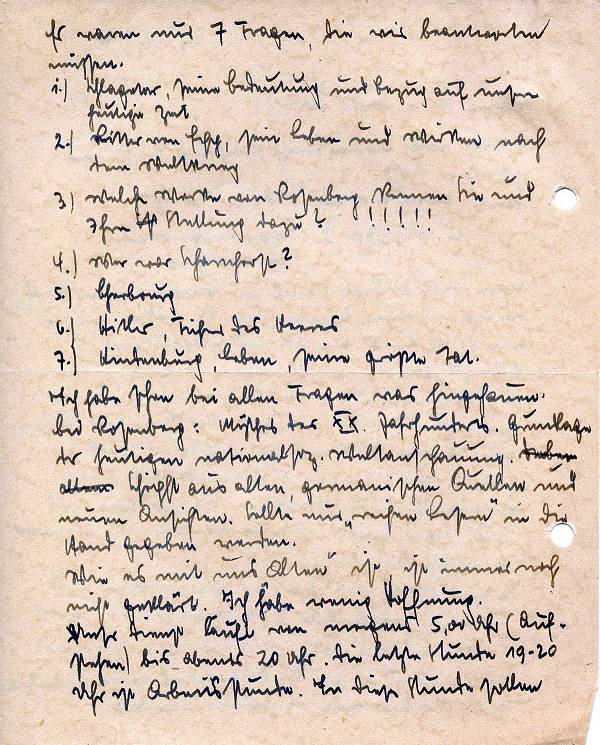 Es waren nur 7 Fragen, die wir beantworten
müssen.
1.) Schlageter, seine Bedeutung und Bezug auf unsere
heutige Zeit
2.) Ritter von Epp, sein Leben und Wirken nach
dem Weltkrieg
3.) Welche Werke von Rosenberg kennen Sie und
Ihre Stellung dazu? !!!!!
4.) Wer war Scharnhorst?
5.) Cherbourg
6.) Hitler, Führer des Heeres
7.) Hindenburg, Leben, seine größte Tat.
Ich habe schon bei allen Fragen was hingehauen.
bei Rosenberg: Mythos des XX. Jahrhunderts. Grundlage
der heutigen nationalsoz. Weltanschauung.
Schöpft aus alten, germanischen Quellen und
neuen Ansichten. Sollte nur „reifen Lesern" in die
Hand gegeben werden.
Wie es mit uns „Alten" ist, ist immer noch
nicht geklärt. Ich habe wenig Hoffnung.
Unser Dienst läuft von morgens 5,00 Uhr (Auf-
stehen) bis abends 20 Uhr. Die letzte Stunde 19-20
Uhr ist Arbeitsstunde. In dieser Stunde sollen